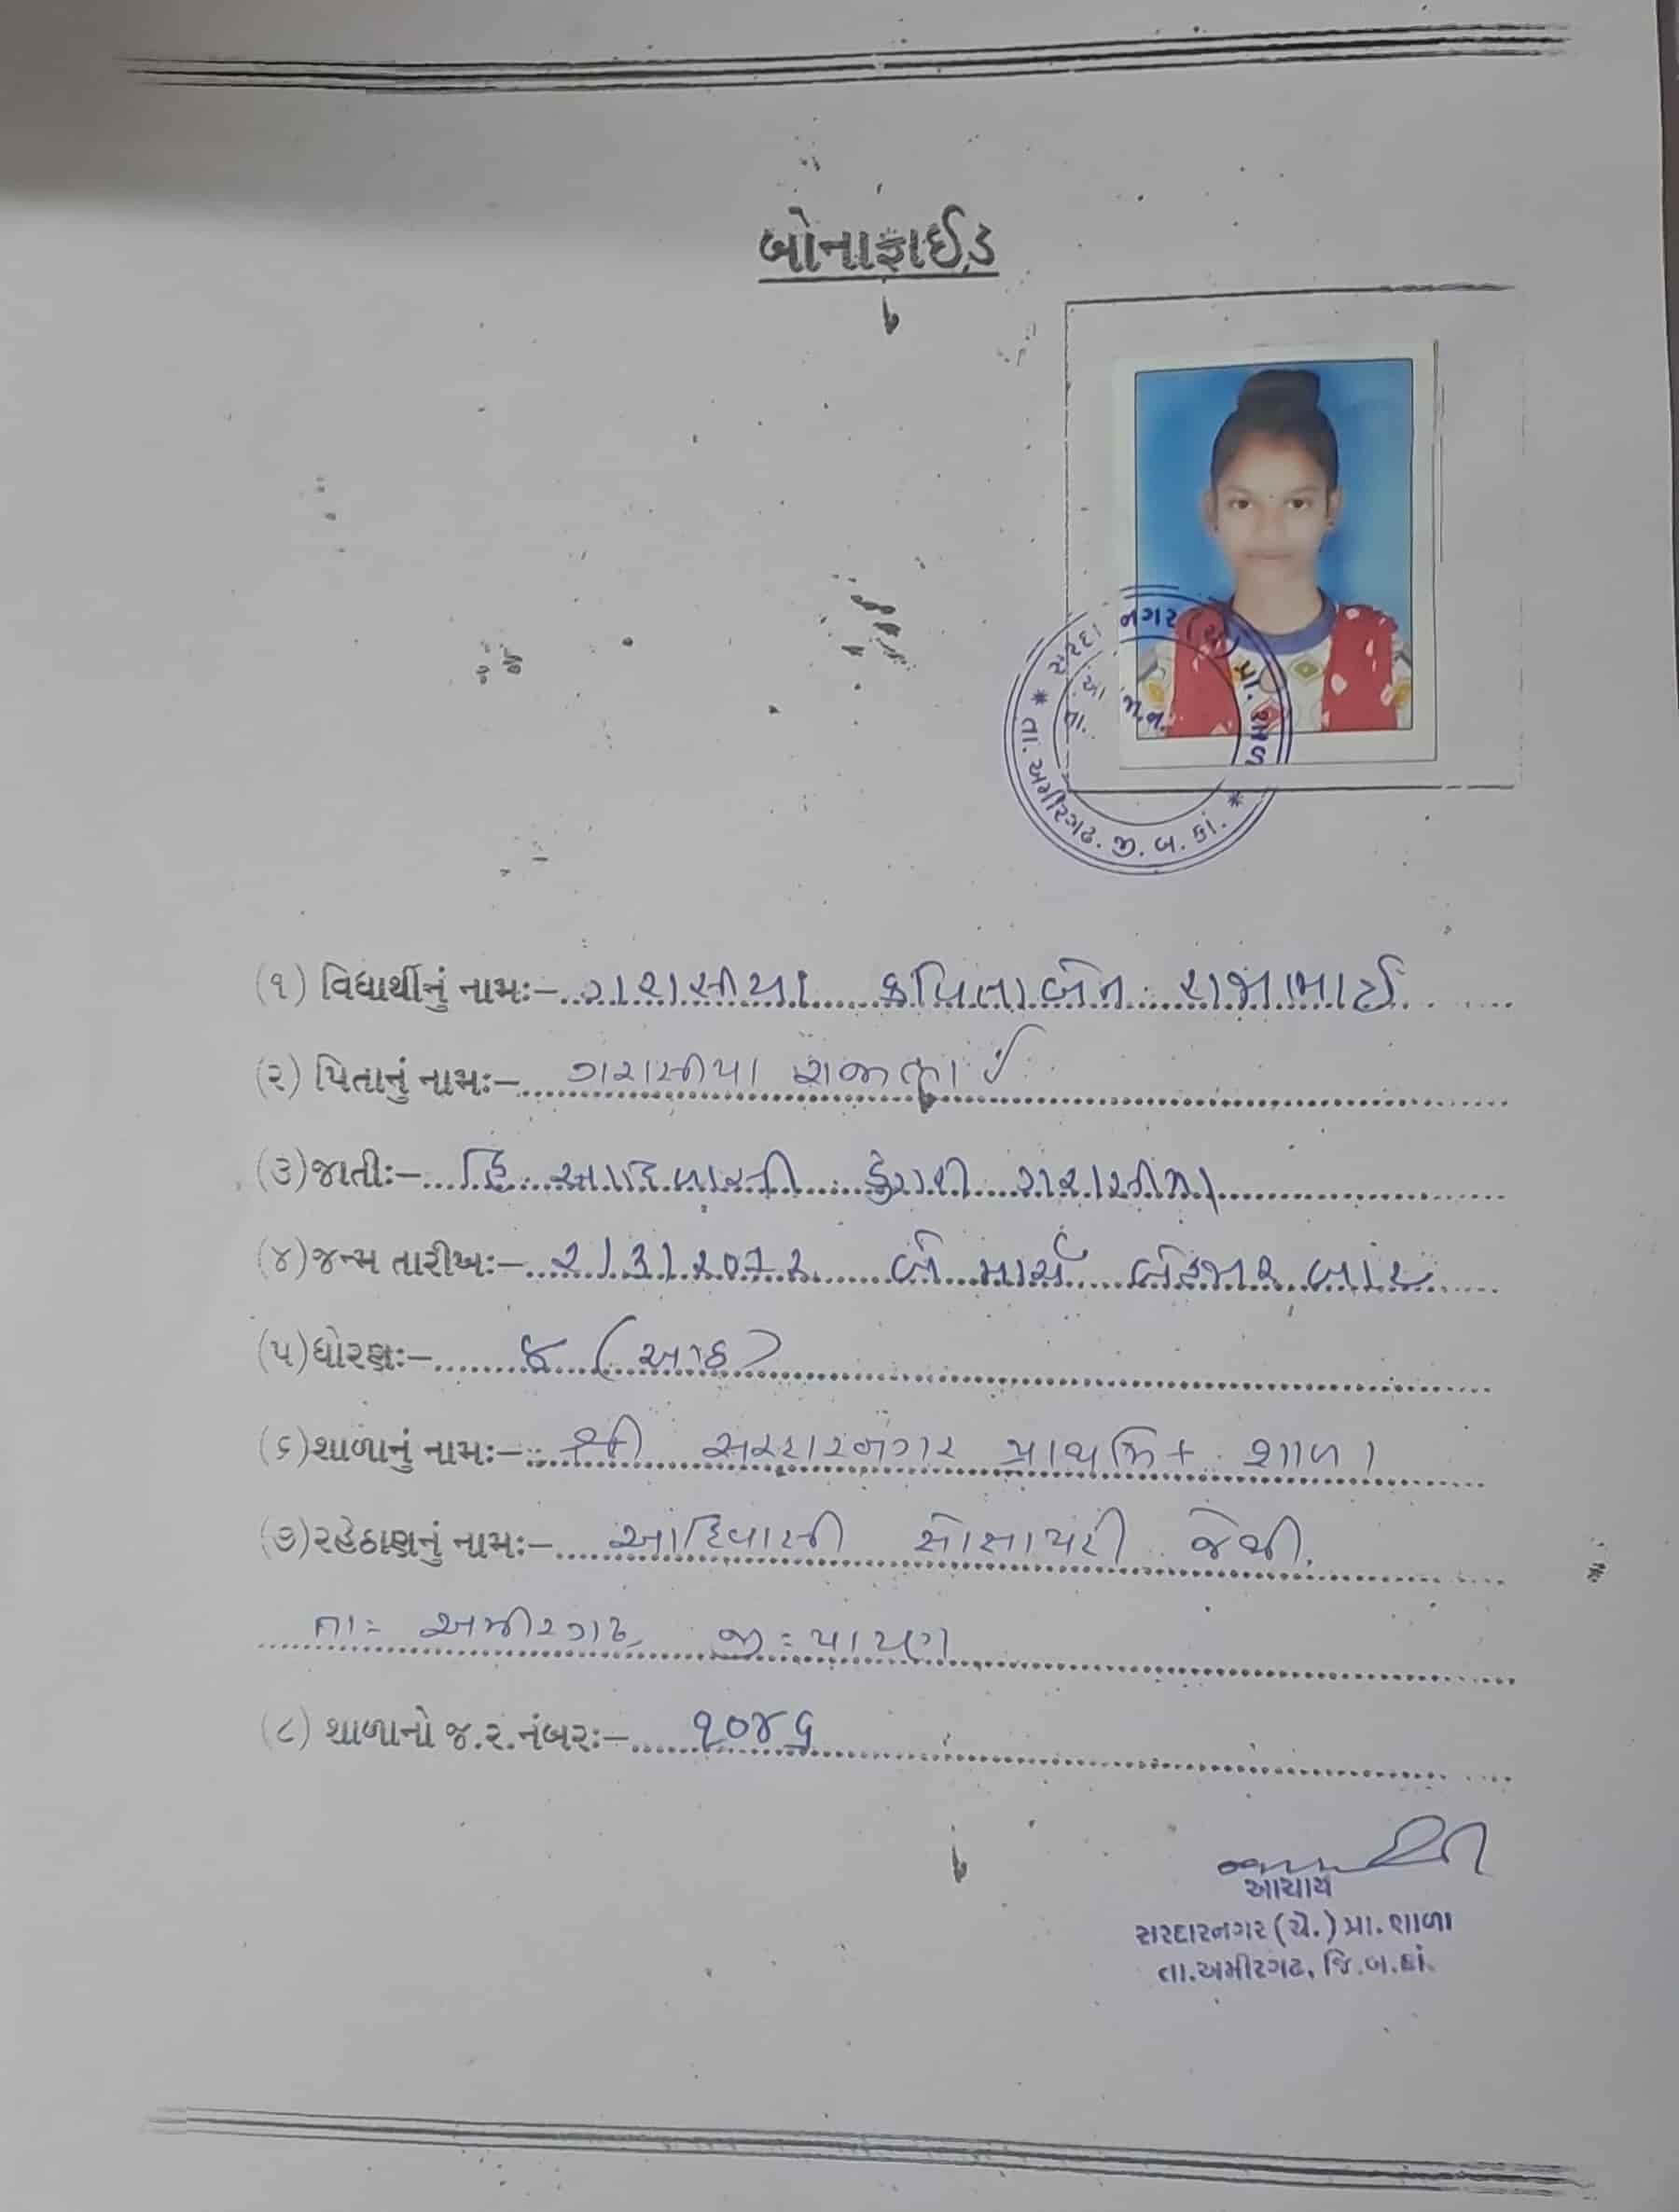 બોનાફાઈડ
સરદારનગર (ચે) પ્રા. શાળા * તા. અમીરગઢ. જી. બ. કાં. *
(૧) વિદ્યાર્થીનું નામઃ- ગરાસીયા કપિલાબેન રાજાભાઈ
(૨) પિતાનું નામઃ- ગરાસીયા રાજાભાઈ
(૩) જાતીઃ- હિં આદિવાસી ડુંગરી ગરાસીયા
(૪) જન્મ તારીખઃ- ૨/૩/૨૦૧૨ બે માર્ચ બેહજાર બાર
(૫) ધોરણઃ- ૮ (આઠ)
(૬) શાળાનું નામઃ- શ્રી સરદારનગર પ્રાથમિક શાળા
(૭) રહેઠાણનું નામઃ- આદિવાસી સોસાયટી
તાઃ અમીરગઢ જીઃ
(૮) શાળાનો જ.ર.નંબરઃ- ૧૦૪૬
આચાર્ય
સરદારનગર (ચે.) પ્રા. શાળા
તા.અમીરગઢ, જિ.બ.કાં.